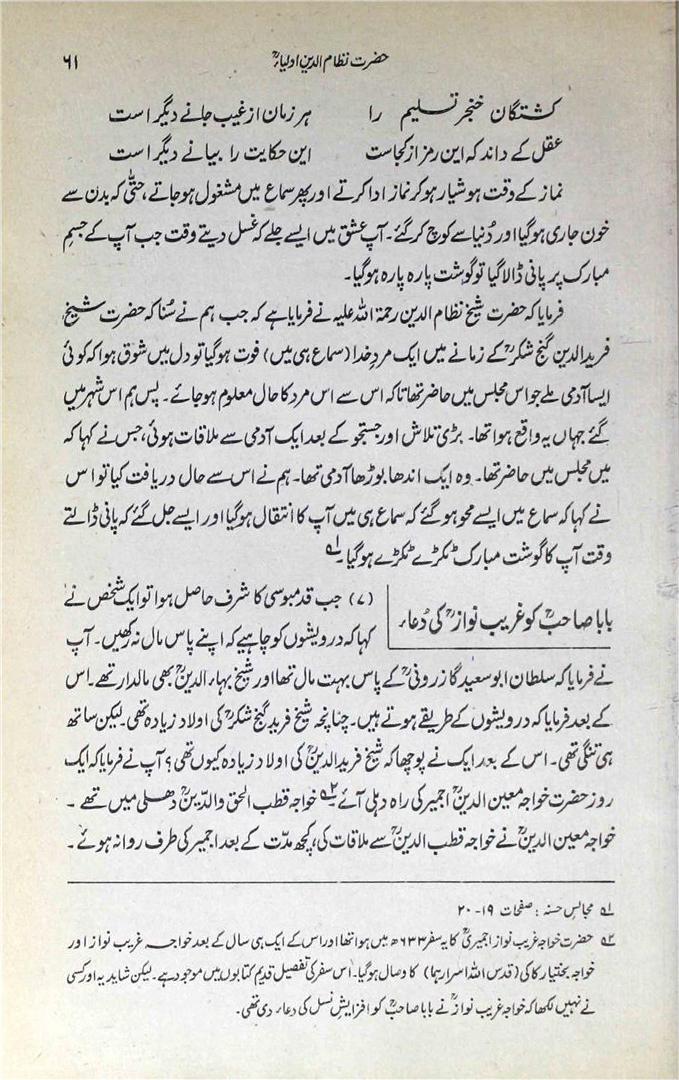 حضرت نظام الدین اولیاءؒ
۶۱
کشتگان خنجر تسلیم را ہر زمان از غیب جانے دیگر است
عقل کے داند کہ این رمز از کجاست این حکایت را بیانے دیگر است
نماز کے وقت ہوشیار ہوکر نماز ادا کرتے اور پھر سماع میں مشغول ہوجاتے، حتّٰی کہ بدن سے
خون جاری ہوگیا اور دُنیا سے کوچ کر گئے۔ آپ عشق میں ایسے جلے کہ غسل دیتے وقت جب آپ کے جسم
مبارک پر پانی ڈالا گیا تو گوشت پارہ پارہ ہوگیا۔
فرمایا کہ حضرت شیخ نظام الدین رحمۃ اللہ علیہ نے فرمایا ہے کہ جب ہم نے سُنا کہ حضرت شیخ
فرید الدین گنج شکرؒ کے زمانے میں ایک مردِ خدا (سماع ہی میں) فوت ہوگیا تو دل میں شوق ہوا کہ کوئی
ایسا آدمی ملے جو اس مجلس میں حاضر تھا تاکہ اس سے اس مرد کا حال معلوم ہوجائے۔ پس ہم اس شہر میں
گئے جہاں یہ واقع ہوا تھا۔ بڑی تلاش اور جستجو کے بعد ایک آدمی سے ملاقات ہوئی، جس نے کہا کہ
میں مجلس میں حاضر تھا۔ وہ ایک اندھا بوڑھا آدمی تھا۔ ہم نے اس سے حال دریافت کیا تو اس
نے کہا کہ سماع میں ایسے محو ہوگئے کہ سماع ہی میں آپ کا انتقال ہوگیا اور ایسے جل گئے کہ پانی ڈالتے
وقت آپ کا گوشت مبارک ٹکڑے ٹکڑے ہوگیا۔ ؎۱
بابا صاحبؒ کو غریب نوازؒ کی دُعاء
(۷) جب قدمبوسی کا شرف حاصل ہوا تو ایک شخص نے
کہا کہ درویشوں کو چاہیے کہ اپنے پاس مال نہ رکھیں۔ آپ
نے فرمایا کہ سلطان ابو سعید گازرونیؒ کے پاس بہت مال تھا اور شیخ بہاء الدینؒ بھی مالدار تھے۔ اس
کے بعد فرمایا کہ درویشوں کے طریقے ہوتے ہیں۔ چنانچہ شیخ فرید گنج شکرؒ کی اولاد زیادہ تھی۔ لیکن ساتھ
ہی تنگی تھی۔ اس کے بعد ایک نے پوچھا کہ شیخ فرید الدینؒ کی اولاد زیادہ کیوں تھی؟ آپ نے فرمایا کہ ایک
روز حضرت خواجہ معین الدینؒ اجمیر کی راہ دہلی آئے ؎۲ خواجہ قطب الحق والدّینؒ دھلی میں تھے۔
خواجہ معین الدینؒ نے خواجہ قطب الدینؒ سے ملاقات کی، کچھ مدّت کے بعد اجمیر کی طرف روانہ ہوئے۔
؎۱ مجالس حسنہ : صفحات ۱۹-۲۰
؎۲ حضرت خواجہ غریب نواز اجمیریؒ کا یہ سفر ۶۳۳ھ میں ہوا تھا اور اس کے ایک ہی سال کے بعد خواجہ غریب نواز اور
خواجہ بختیار کاکی (قدس اللہ اسرارہما) کا وصال ہوگیا۔ اس سفر کی تفصیل قدیم کتابوں میں موجود ہے۔ لیکن شاید یہ اور کسی
نے نہیں لکھا کہ خواجہ غریب نوازؒ نے بابا صاحبؒ کو افزایشِ نسل کی دعاء دی تھی۔